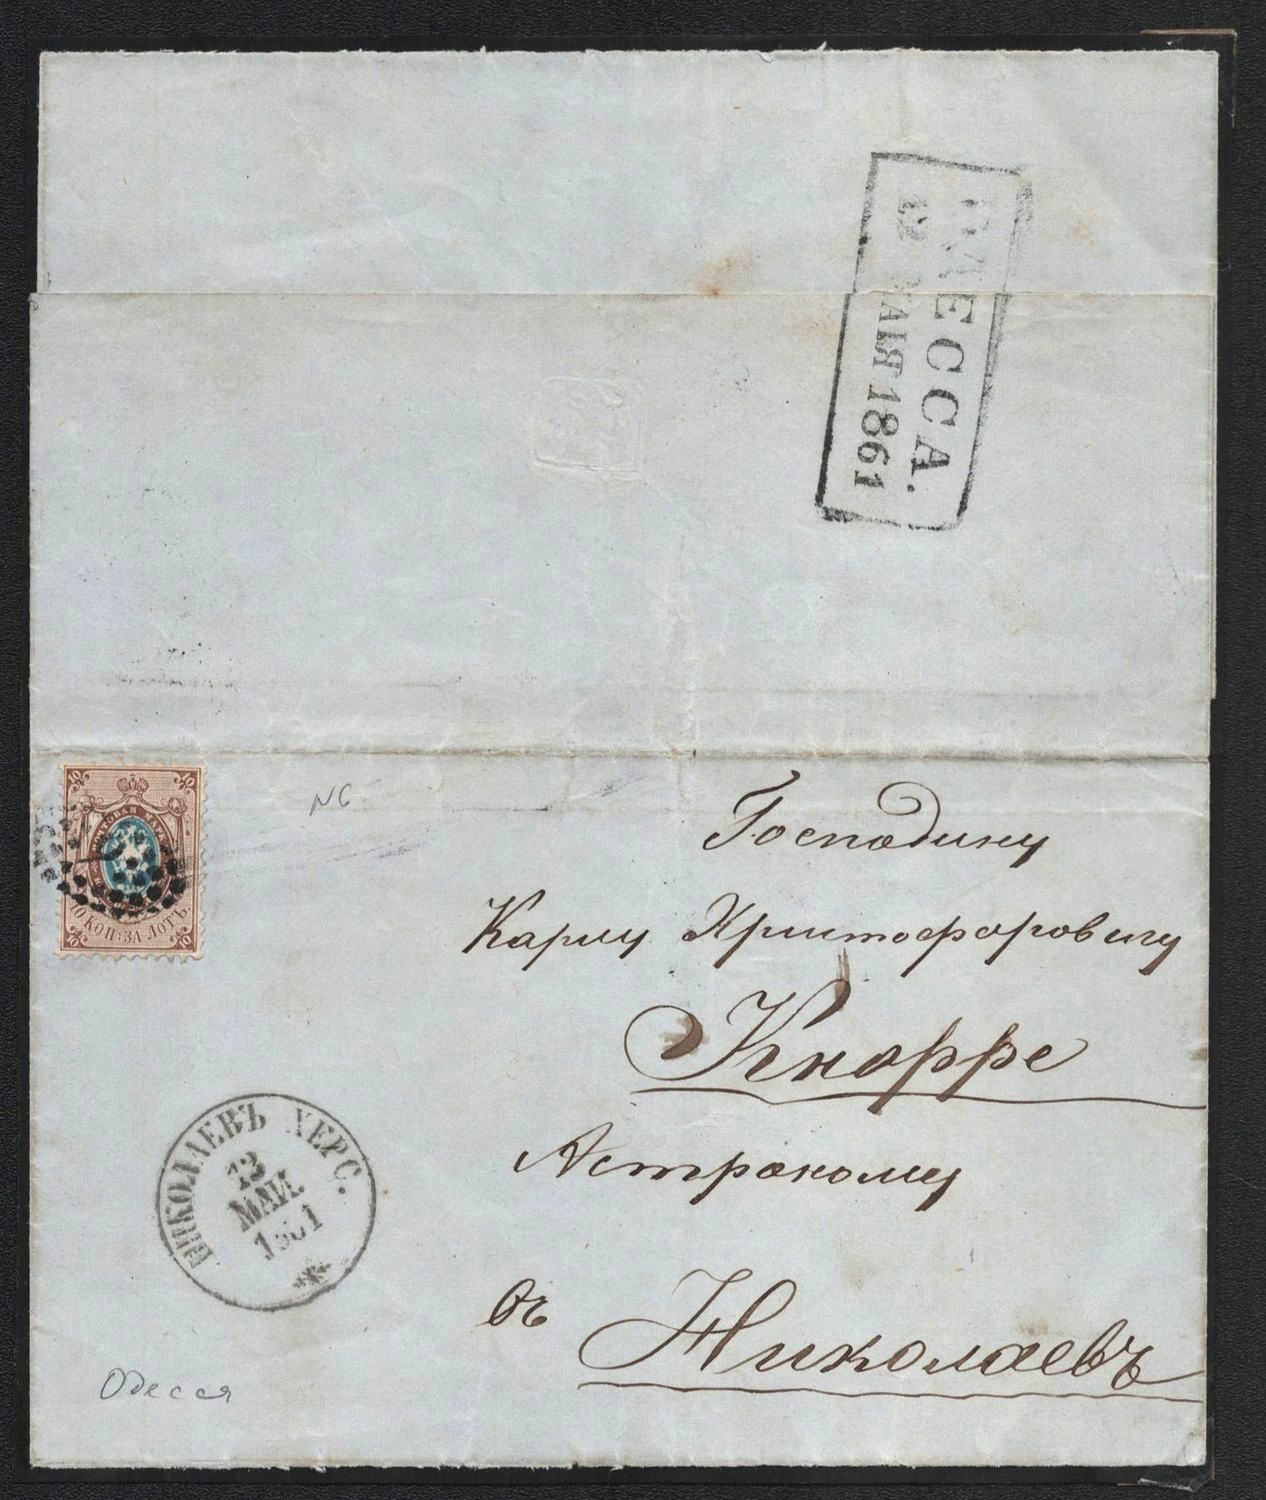 ОДЕССА.
12 МАІЯ 1861
10 10
10 КОП: ЗА ЛОТЪ.
10 10
NG
Господину
Карлу Христофоровичу
Кнорре
Астроному
въ Николаевъ
НИКОЛАЕВЪ ХЕРС.
13
МАИ.
1861
Одесса